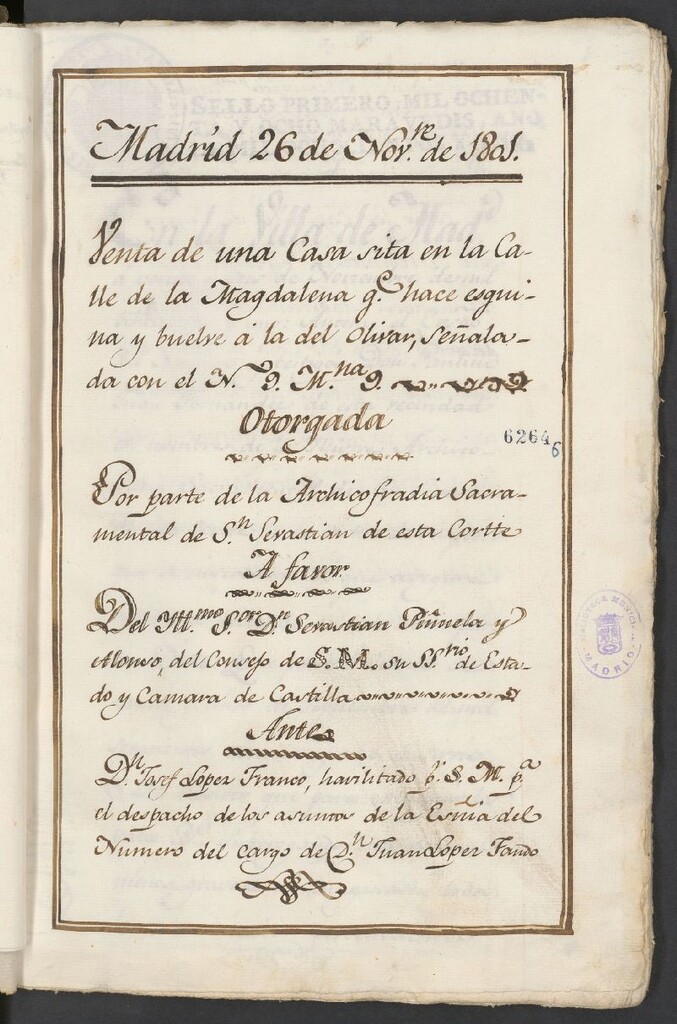 Madrid 26 de Nov.re de 1801.
Venta de una Casa sita en la Ca-
lle de la Magdalena q.e hace esqui-
na y buelve á la del Olivar, señala-
da con el N.o 9. M.na 9.
Otorgada
62646
Por parte de la Archicofradia Sacra-
mental de S.n Sevastian de esta Cortte
A favor
Del Ill.mo S.or D.n Sevastian Piñuela y
Alonso, del Consejo de S. M. su SS.rio de Esta-
do y Camara de Castilla
Ante
D.n Josef Lopez Franco, havilitado p.r S. M. p.a
el despacho de los asuntos de la Esñia del
Numero del cargo de D.n Juan Lopez Fando
BIBLIOTECA MUNICIPAL
MADRID
SELLO PRIMERO, MIL OCHEN-
TA Y OCHO MARAVEDIS, AÑO
En la Villa de Mad.d